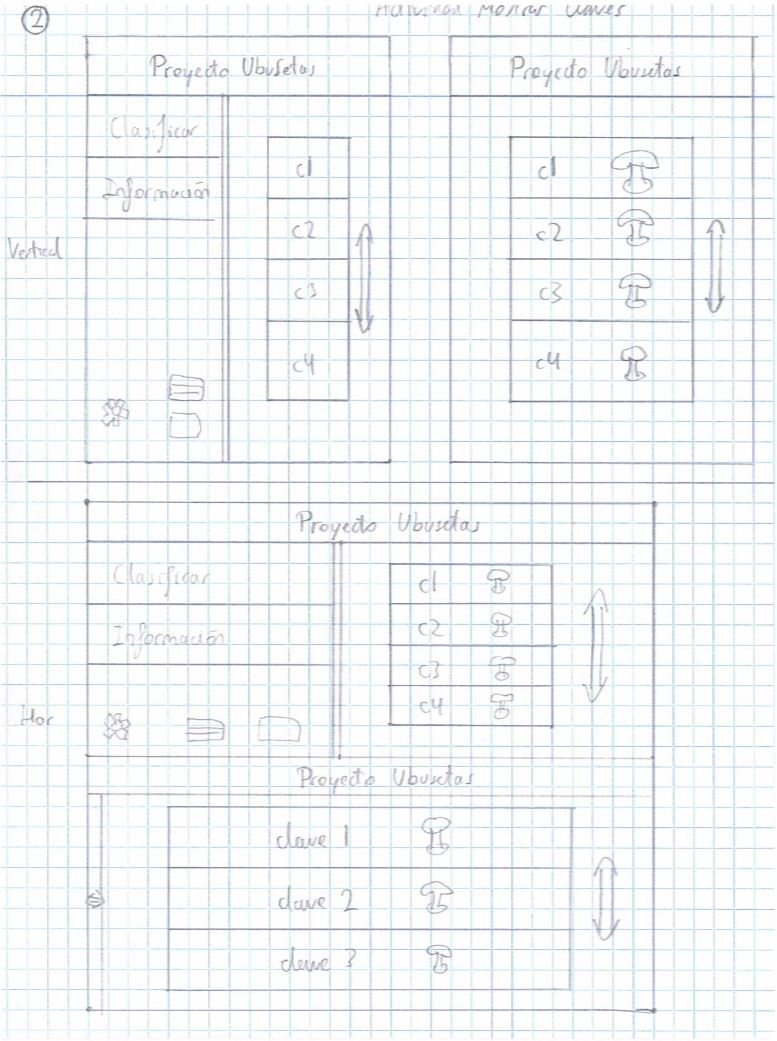 2
Actividad Mostrar Claves
Proyecto Ubusetas
Clasificar
Información
c1
c2
c3
c4
Proyecto Ubusetas
c1
c2
c3
c4
Vertical
Proyecto Ubusetas
Clasificar
Información
c1
c2
c3
c4
Hor
Proyecto Ubusetas
clave 1
clave 2
clave 3